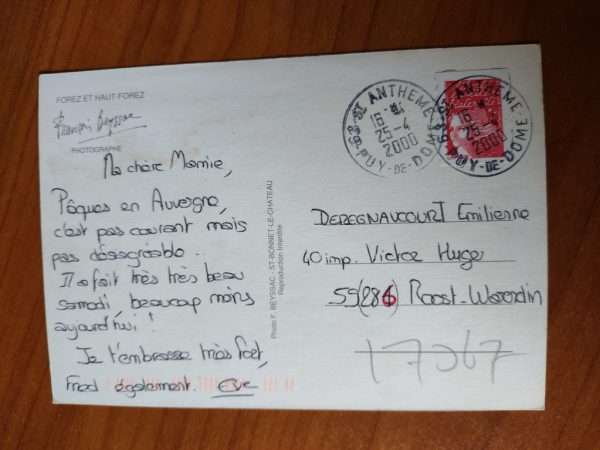 FOREZ ET HAUT-FOREZ
François Beyssac
PHOTOGRAPHE
Ma chère Mamie,
Pâques en Auvergne,
c'est pas courant mais
pas désagréable..
Il a fait très très beau
samedi, beaucoup moins
aujourd'hui !
Je t'embrasse très fort,
Fred également. Eve
Photo F. BEYSSAC - ST-BONNET-LE-CHATEAU
Reproduction Interdite
63-ST ANTHEME
16 H
25-4
2000
PUY-DE-DOME
63-ST ANTHEME
16 H
25-4
2000
PUY-DE-DOME
DEREGNAUCOURT Emilienne
40 imp. Victor Hugo
59286 Roost-Warendin
17067